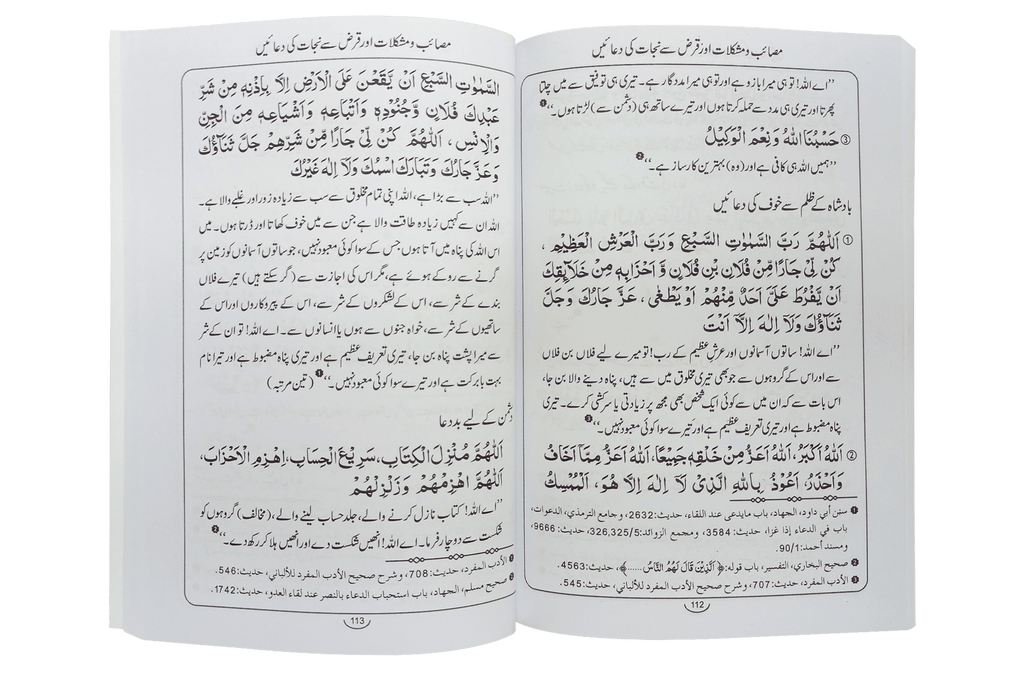 مصائب و مشکلات اور قرض سے نجات کی دعائیں
’’اے اللہ! تو ہی میرا بازو ہے اور تو ہی میرا مددگار ہے۔ تیری ہی توفیق سے میں چلتا
پھرتا اور تیری ہی مدد سے حملہ کرتا ہوں اور تیرے ساتھ ہی (دشمن سے) لڑتا ہوں۔‘‘ ❶
③ حَسْبُنَا اللهُ وَنِعْمَ الْوَكِيْلُ
’’ہمیں اللہ ہی کافی ہے اور (وہ) بہترین کارساز ہے۔‘‘ ❷
بادشاہ کے ظلم سے خوف کی دعائیں
① اَللّٰهُمَّ رَبَّ السَّمٰوٰتِ السَّبْعِ وَرَبَّ الْعَرْشِ الْعَظِيْمِ ،
كُنْ لِّيْ جَارًا مِّنْ فُلَانِ بْنِ فُلَانٍ وَّ اَحْزَابِهٖ مِنْ خَلَآئِقِكَ
اَنْ يَّفْرُطَ عَلَيَّ اَحَدٌ مِّنْهُمْ اَوْ يَطْغٰى ، عَزَّ جَارُكَ وَجَلَّ
ثَنَاؤُكَ وَلَآ اِلٰهَ اِلَّآ اَنْتَ
’’اے اللہ! ساتوں آسمانوں اور عرش عظیم کے رب! تو میرے لیے فلاں بن فلاں
سے اور اس کے گروہوں سے جو بھی تیری مخلوق میں سے ہیں، پناہ دینے والا بن جا،
اس بات سے کہ ان میں سے کوئی ایک شخص بھی مجھ پر زیادتی یا سرکشی کرے۔ تیری
پناہ مضبوط ہے اور تیری تعریف عظیم ہے اور تیرے سوا کوئی معبود نہیں۔‘‘ ❸
② اَللهُ اَكْبَرُ، اَللهُ اَعَزُّ مِنْ خَلْقِهٖ جَمِيْعًا، اَللهُ اَعَزُّ مِمَّا اَخَافُ
وَاَحْذَرُ، اَعُوْذُ بِاللهِ الَّذِيْ لَآ اِلٰهَ اِلَّا هُوَ، الْمُمْسِكُ
❶ سنن أبي داود، الجهاد، باب مايدعى عند اللقاء، حديث:2632، وجامع الترمذي، الدعوات،
باب في الدعاء إذا غزا، حديث: 3584، ومجمع الزوائد:326,325/5، حديث:9666،
ومسند أحمد:90/1.
❷ صحيح البخاري، التفسير، باب قوله:﴿الَّذِيْنَ قَالَ لَهُمُ النَّاسُ ......﴾، حديث:4563.
❸ الأدب المفرد، حديث:707، وشرح صحيح الأدب المفرد للألباني، حديث:545.
112
مصائب و مشکلات اور قرض سے نجات کی دعائیں
السَّمٰوٰتِ السَّبْعِ اَنْ يَّقَعْنَ عَلَى الْاَرْضِ اِلَّا بِاِذْنِهٖ مِنْ شَرِّ
عَبْدِكَ فُلَانٍ وَّجُنُوْدِهٖ وَاَتْبَاعِهٖ وَاَشْيَاعِهٖ مِنَ الْجِنِّ
وَالْاِنْسِ ، اَللّٰهُمَّ كُنْ لِّيْ جَارًا مِّنْ شَرِّهِمْ جَلَّ ثَنَاؤُكَ
وَعَزَّ جَارُكَ وَتَبَارَكَ اسْمُكَ وَلَآ اِلٰهَ غَيْرُكَ
’’اللہ سب سے بڑا ہے، اللہ اپنی تمام مخلوق سے سب سے زیادہ زور اور غلبے والا ہے۔
اللہ ان سے کہیں زیادہ طاقت والا ہے جن سے میں خوف کھاتا اور ڈرتا ہوں۔ میں
اس اللہ کی پناہ میں آتا ہوں جس کے سوا کوئی معبود نہیں، جو ساتوں آسمانوں کو زمین پر
گرنے سے روکے ہوئے ہے، مگر اس کی اجازت سے (گر سکتے ہیں) تیرے فلاں
بندے کے شر سے، اس کے لشکروں کے شر سے، اس کے پیروکاروں اور اس کے
ساتھیوں کے شر سے، خواہ جنوں سے ہوں یا انسانوں سے۔ اے اللہ! تو ان کے شر
سے میرا پشت پناہ بن جا، تیری تعریف عظیم ہے اور تیری پناہ مضبوط ہے اور تیرا نام
بہت بابرکت ہے اور تیرے سوا کوئی معبود نہیں۔‘‘ ❶ (تین مرتبہ)
دشمن کے لیے بددعا
اَللّٰهُمَّ مُنْزِلَ الْكِتَابِ، سَرِيْعَ الْحِسَابِ، اِهْزِمِ الْاَحْزَابَ،
اَللّٰهُمَّ اهْزِمْهُمْ وَزَلْزِلْهُمْ
’’اے اللہ! کتاب نازل کرنے والے، جلد حساب لینے والے، (مخالف) گروہوں کو
شکست سے دوچار فرما۔ اے اللہ! انھیں شکست دے اور انھیں ہلا کر رکھ دے۔‘‘ ❷
❶ الأدب المفرد، حديث:708، وشرح صحيح الأدب المفرد للألباني، حديث:546.
❷ صحيح مسلم، الجهاد، باب استحباب الدعاء بالنصر عند لقاء العدو، حديث:1742.
113